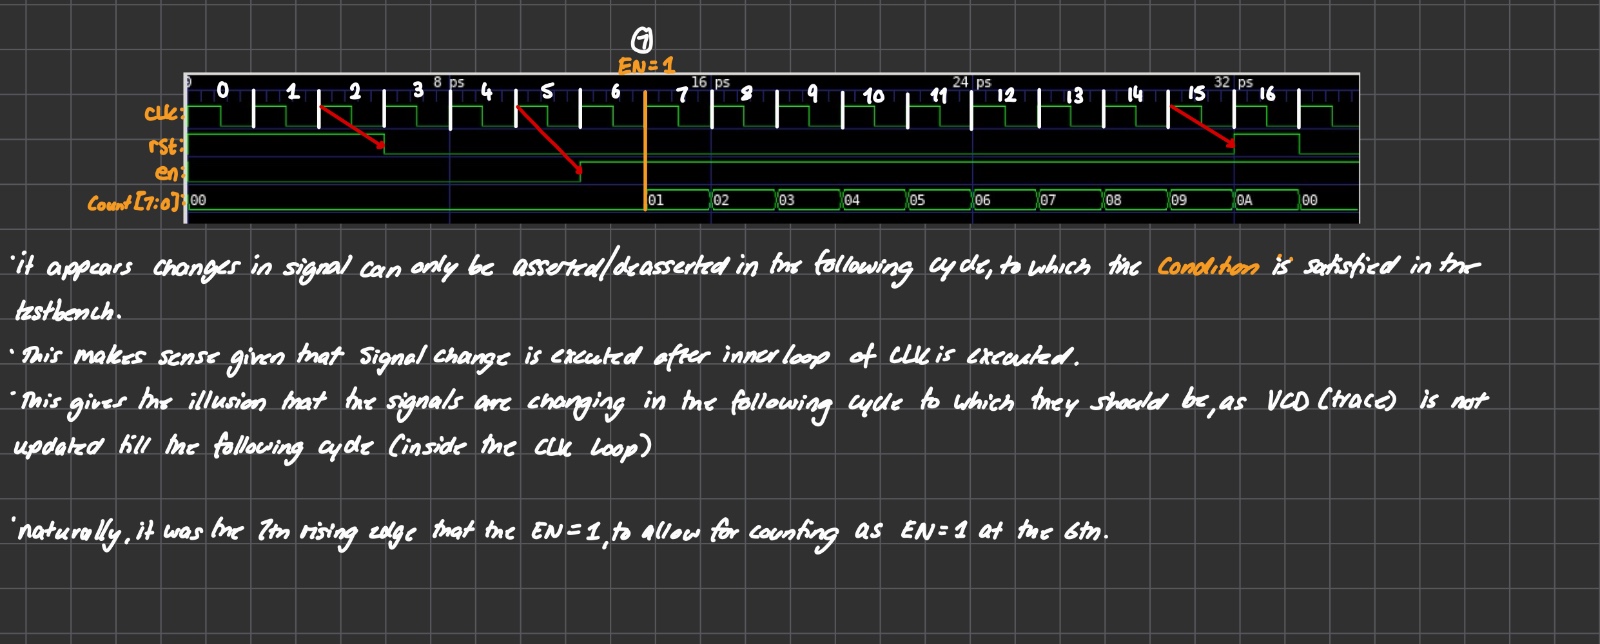 7
EN=1
0 8 ps 16 ps 24 ps 32 ps
0 1 2 3 4 5 6 7 8 9 10 11 12 13 14 15 16
clk:
rst:
en:
Count[7:0]: 00 01 02 03 04 05 06 07 08 09 0A 00
·it appears changes in signal can only be asserted/deasserted in the following cycle, to which the Condition is satisfied in the
testbench.
·This makes sense given that Signal change is executed after inner loop of CLK is executed.
·This gives the illusion that the signals are changing in the following cycle to which they should be, as VCD (trace) is not
updated till the following cycle (inside the CLK Loop)
·naturally, it was the 7th rising edge that the EN=1, to allow for counting as EN=1 at the 6th.